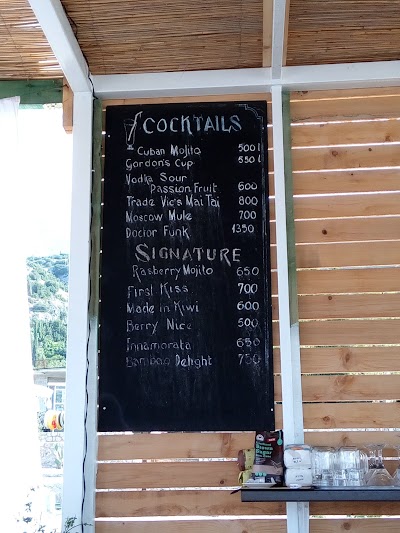 COCKTAILS
Cuban Mojito 500 l
Gordon's Cup 550 l
Vodka Sour
Passion Fruit 600
Trade Vic's Mai Tai 800
Moscow Mule 700
Doctor Funk 1350
SIGNATURE
Rasberry Mojito 650
First Kiss 700
Made in Kiwi 600
Berry Nice 500
Innamorata 650
Bamboo Delight 750